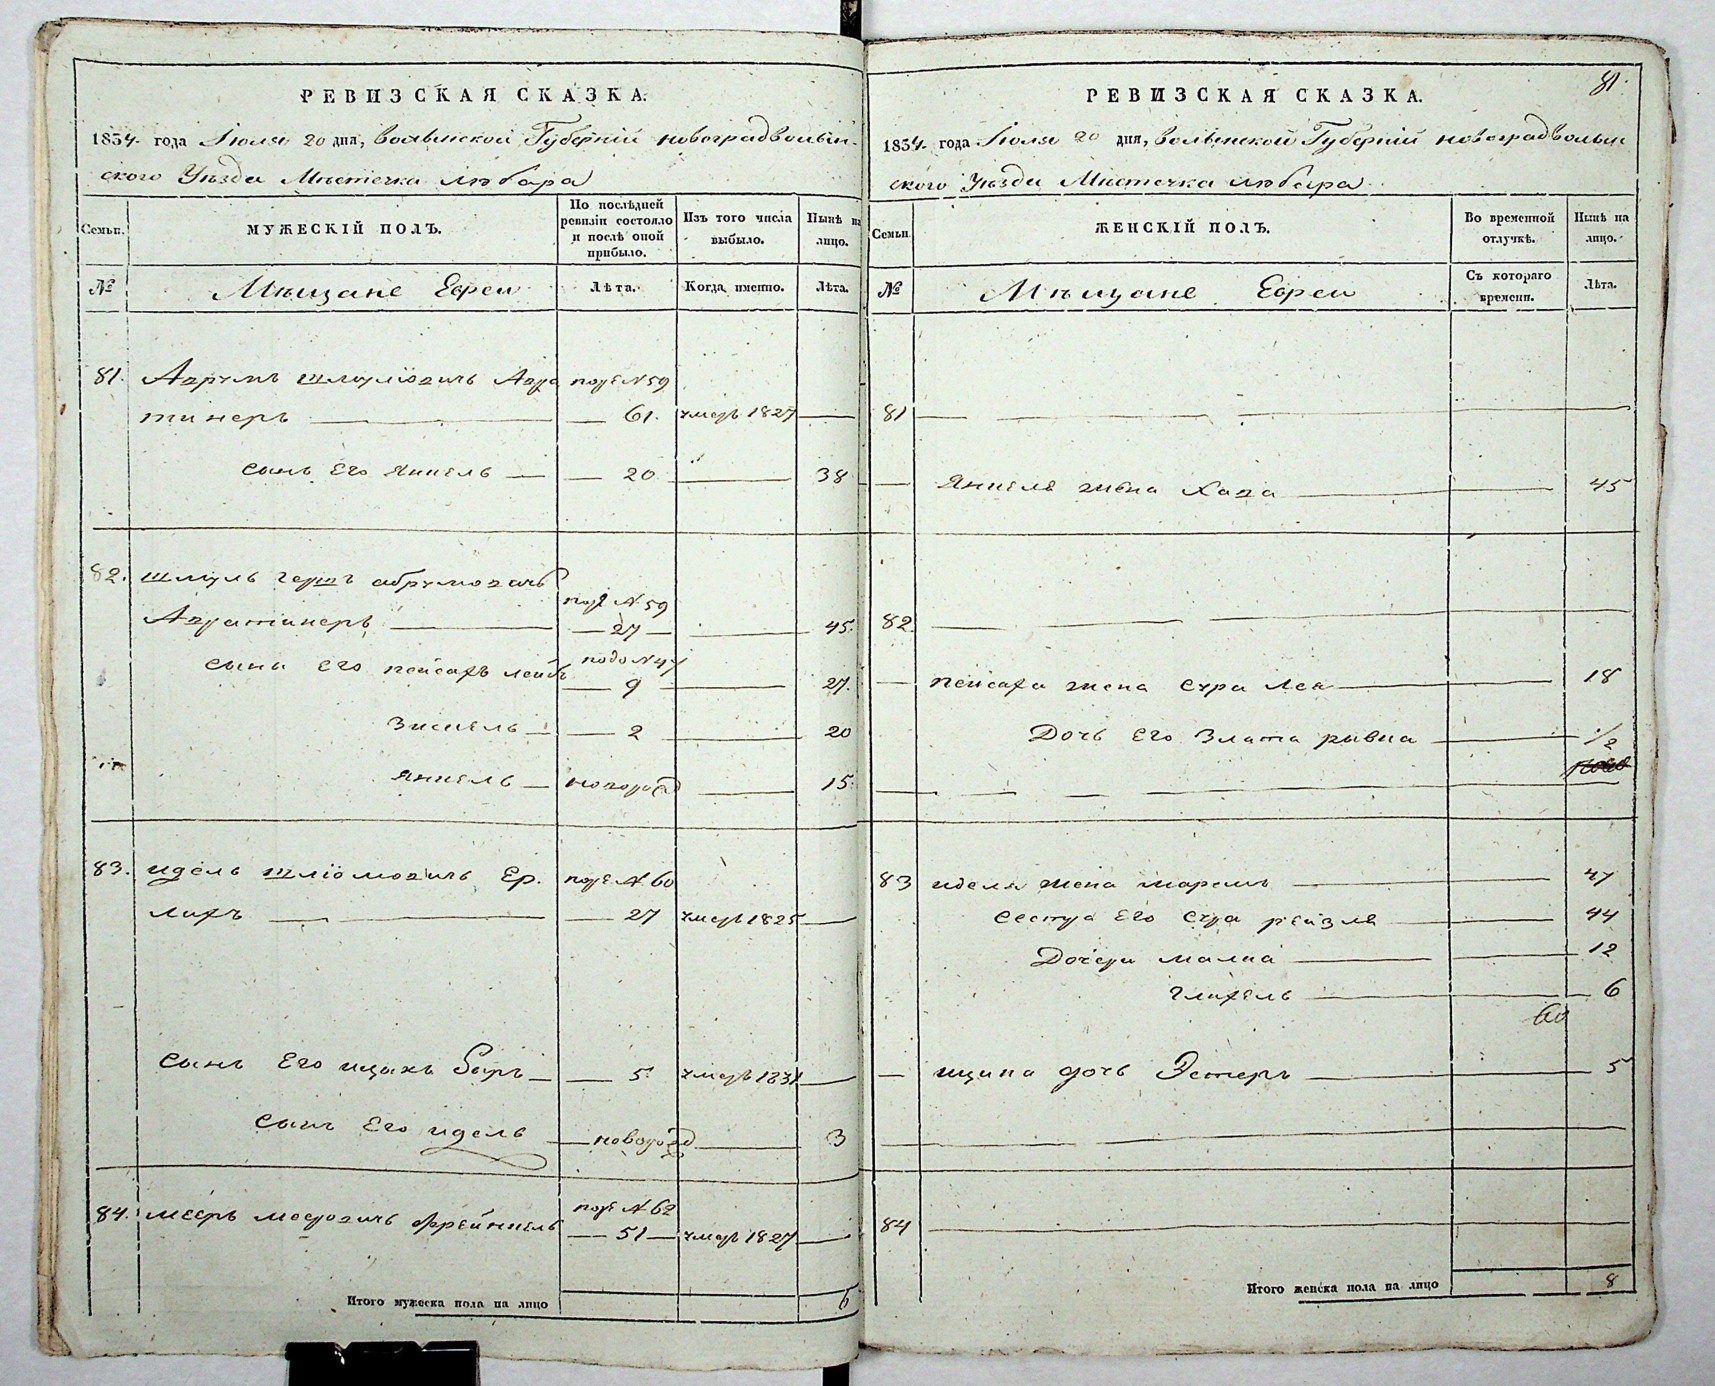 РЕВИЗСКАЯ СКАЗКА.
1834. года Іюля 20 дня, Волынской Губерніи Новоградволын-
ского Уѣзда Мѣстечка Любара
Семьи.
МУЖЕСКІЙ ПОЛЪ.
По послѣдней ревизіи состояло и послѣ оной прибыло.
Изъ того числа выбыло.
Нынѣ на лицо.
№
Мѣщане Евреи
Лѣта.
Когда именно.
Лѣта.
81. Аврумъ Шмулiовичъ
подъ № 59
тинеръ — 61. умеръ 1827
сынъ Его Янкель — 20 — 38
82. Шмуль Гершъ Абрумовичъ
подъ № 59
— 27 — 45.
сыны Его Пейсахъ Лейбъ
9 — 27.
Зисель — 2 — 20
Янкель — новорожд — 15.
83. Идель Шліомовичъ Ер.
подъ № 60
лихъ — 27 умеръ 1825
Сынъ Его Ицыкъ Беръ — 5 умеръ 1831
Сынъ Его Идель — новорожд — 3
84. Мееръ
подъ № 62
Френкель — 51 — умеръ 1827
Итого мужеска пола на лицо 6
81.
РЕВИЗСКАЯ СКАЗКА.
1834. года Іюля 20 дня, Волынской Губерніи Новоградволын
ского Уѣзда Мѣстечка Любара
Семьи.
ЖЕНСКІЙ ПОЛЪ.
Во временной отлучкѣ.
Нынѣ на лицо.
№
Мѣщане Евреи
Съ котораго времени.
Лѣта.
81
Янкеля жена Хава — 45
82
Пейсаха жена Сура Лея — 18
Дочь Его Злата Ривка — 1/2
83 Иделя жена Маремъ — 47
Сестра Его Сура Рейзля — 44
Дочери Малка — 12
6
60
Ицика дочь Эстеръ — 5
84
Итого женска пола на лицо 8